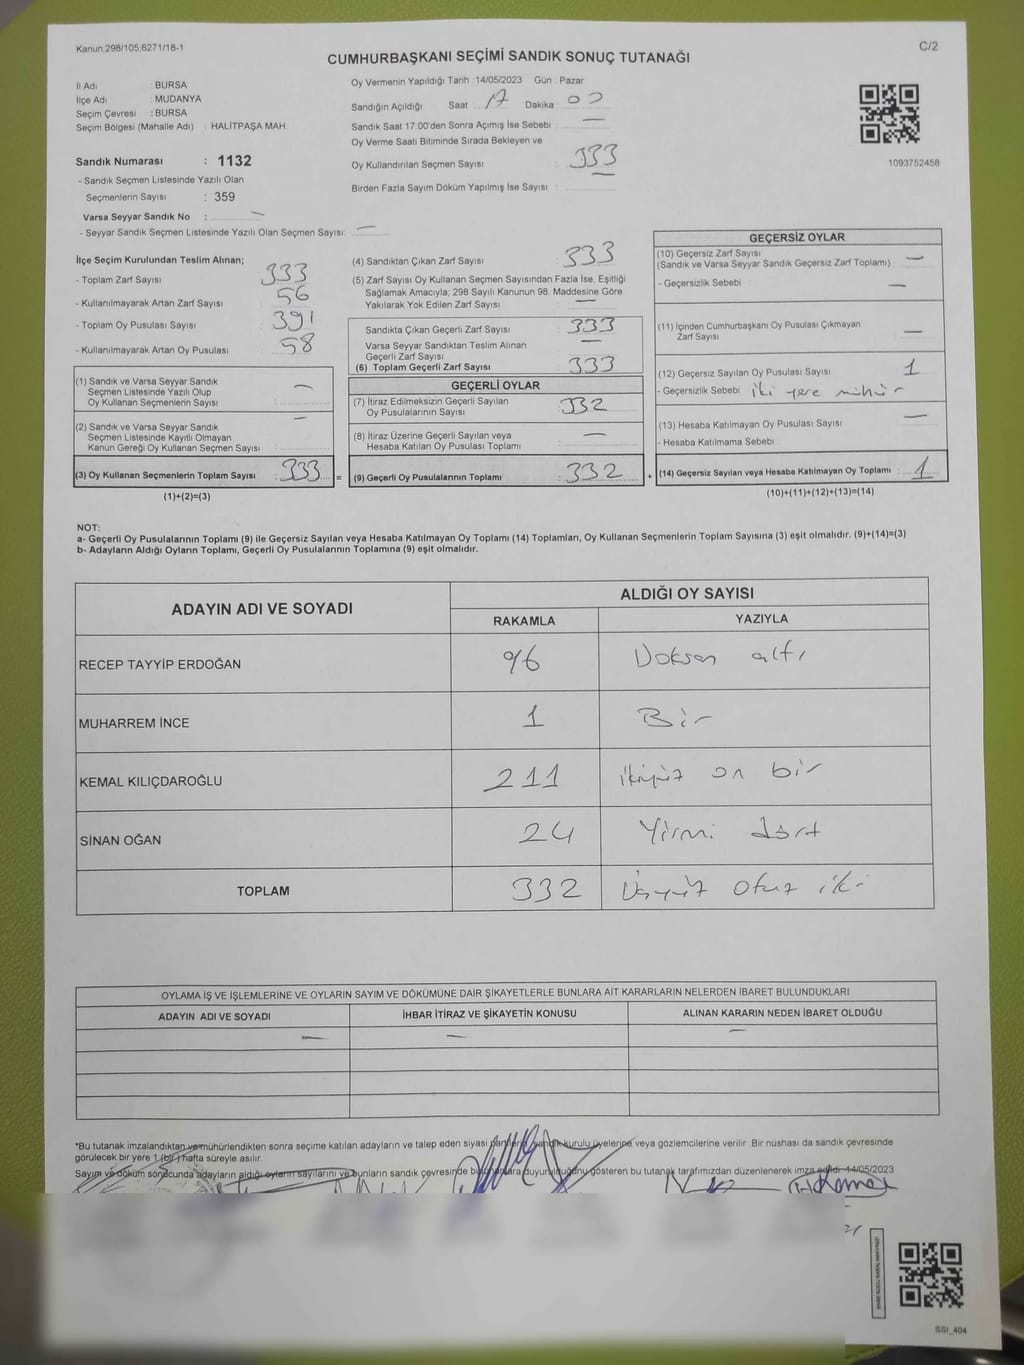 Kanun:298/105;6271/18-1
C/2
CUMHURBAŞKANI SEÇİMİ SANDIK SONUÇ TUTANAĞI
İl Adı : BURSA
İlçe Adı : MUDANYA
Seçim Çevresi : BURSA
Seçim Bölgesi (Mahalle Adı) : HALİTPAŞA MAH.
Sandık Numarası : 1132
- Sandık Seçmen Listesinde Yazılı Olan
Seçmenlerin Sayısı : 359
Varsa Seyyar Sandık No : —
- Seyyar Sandık Seçmen Listesinde Yazılı Olan Seçmen Sayısı: —
Oy Vermenin Yapıldığı Tarih :14/05/2023 Gün : Pazar
Sandığın Açıldığı Saat : 17 Dakika : 00
Sandık Saat 17:00'den Sonra Açımış İse Sebebi : —
Oy Verme Saati Bitiminde Sırada Bekleyen ve
Oy Kullandırılan Seçmen Sayısı : 333
Birden Fazla Sayım Döküm Yapılmış İse Sayısı : —
1093752458
İlçe Seçim Kurulundan Teslim Alınan;
- Toplam Zarf Sayısı : 333
- Kullanılmayarak Artan Zarf Sayısı : 56
- Toplam Oy Pusulası Sayısı : 391
- Kullanılmayarak Artan Oy Pusulası : 58
(1) Sandık ve Varsa Seyyar Sandık
Seçmen Listesinde Yazılı Olup
Oy Kullanan Seçmenlerin Sayısı : —
(2) Sandık ve Varsa Seyyar Sandık
Seçmen Listesinde Kayıtlı Olmayan
Kanun Gereği Oy Kullanan Seçmen Sayısı : —
(3) Oy Kullanan Seçmenlerin Toplam Sayısı : 333 =
(1)+(2)=(3)
(4) Sandıktan Çıkan Zarf Sayısı : 333
(5) Zarf Sayısı Oy Kullanan Seçmen Sayısından Fazla İse, Eşitliği
Sağlamak Amacıyla; 298 Sayılı Kanunun 98. Maddesine Göre
Yakılarak Yok Edilen Zarf Sayısı : —
Sandıkta Çıkan Geçerli Zarf Sayısı : 333
Varsa Seyyar Sandıktan Teslim Alınan
Geçerli Zarf Sayısı : —
(6) Toplam Geçerli Zarf Sayısı : 333
GEÇERLİ OYLAR
(7) İtiraz Edilmeksizin Geçerli Sayılan
Oy Pusulalarının Sayısı : 332
(8) İtiraz Üzerine Geçerli Sayılan veya
Hesaba Katılan Oy Pusulası Toplamı : —
(9) Geçerli Oy Pusulalarının Toplamı : 332 +
GEÇERSİZ OYLAR
(10) Geçersiz Zarf Sayısı
(Sandık ve Varsa Seyyar Sandık Geçersiz Zarf Toplamı) : —
- Geçersizlik Sebebi : —
(11) İçinden Cumhurbaşkanı Oy Pusulası Çıkmayan
Zarf Sayısı : —
(12) Geçersiz Sayılan Oy Pusulası Sayısı : 1
- Geçersizlik Sebebi : iki yere mühür
(13) Hesaba Katılmayan Oy Pusulası Sayısı : —
- Hesaba Katılmama Sebebi :
(14) Geçersiz Sayılan veya Hesaba Katılmayan Oy Toplamı : 1
(10)+(11)+(12)+(13)=(14)
NOT:
a- Geçerli Oy Pusulalarının Toplamı (9) ile Geçersiz Sayılan veya Hesaba Katılmayan Oy Toplamı (14) Toplamları, Oy Kullanan Seçmenlerin Toplam Sayısına (3) eşit olmalıdır. (9)+(14)=(3)
b- Adayların Aldığı Oyların Toplamı, Geçerli Oy Pusulalarının Toplamına (9) eşit olmalıdır.
ADAYIN ADI VE SOYADI ALDIĞI OY SAYISI
RAKAMLA YAZIYLA
RECEP TAYYİP ERDOĞAN 96 Doksan altı
MUHARREM İNCE 1 Bir
KEMAL KILIÇDAROĞLU 211 ikiyüz on bir
SİNAN OĞAN 24 Yirmi dört
TOPLAM 332 Üçyüz otuz iki
OYLAMA İŞ VE İŞLEMLERİNE VE OYLARIN SAYIM VE DÖKÜMÜNE DAİR ŞİKAYETLERLE BUNLARA AİT KARARLARIN NELERDEN İBARET BULUNDUKLARI
ADAYIN ADI VE SOYADI İHBAR İTİRAZ VE ŞİKAYETİN KONUSU ALINAN KARARIN NEDEN İBARET OLDUĞU
— — —
*Bu tutanak imzalandıktan ve mühürlendikten sonra seçime katılan adayların ve talep eden siyasi partilerin sandık kurulu üyelerine veya gözlemcilerine verilir. Bir nüshası da sandık çevresinde
görülecek bir yere 1 (bir) hafta süreyle asılır.
Sayım ve döküm sonucunda adayların aldığı oyların sayılarını ve bunların sandık çevresinde bulunanlara duyurulduğunu gösteren bu tutanak tarafımızdan düzenlenerek imza edildi. 14/05/2023
SSİ_404